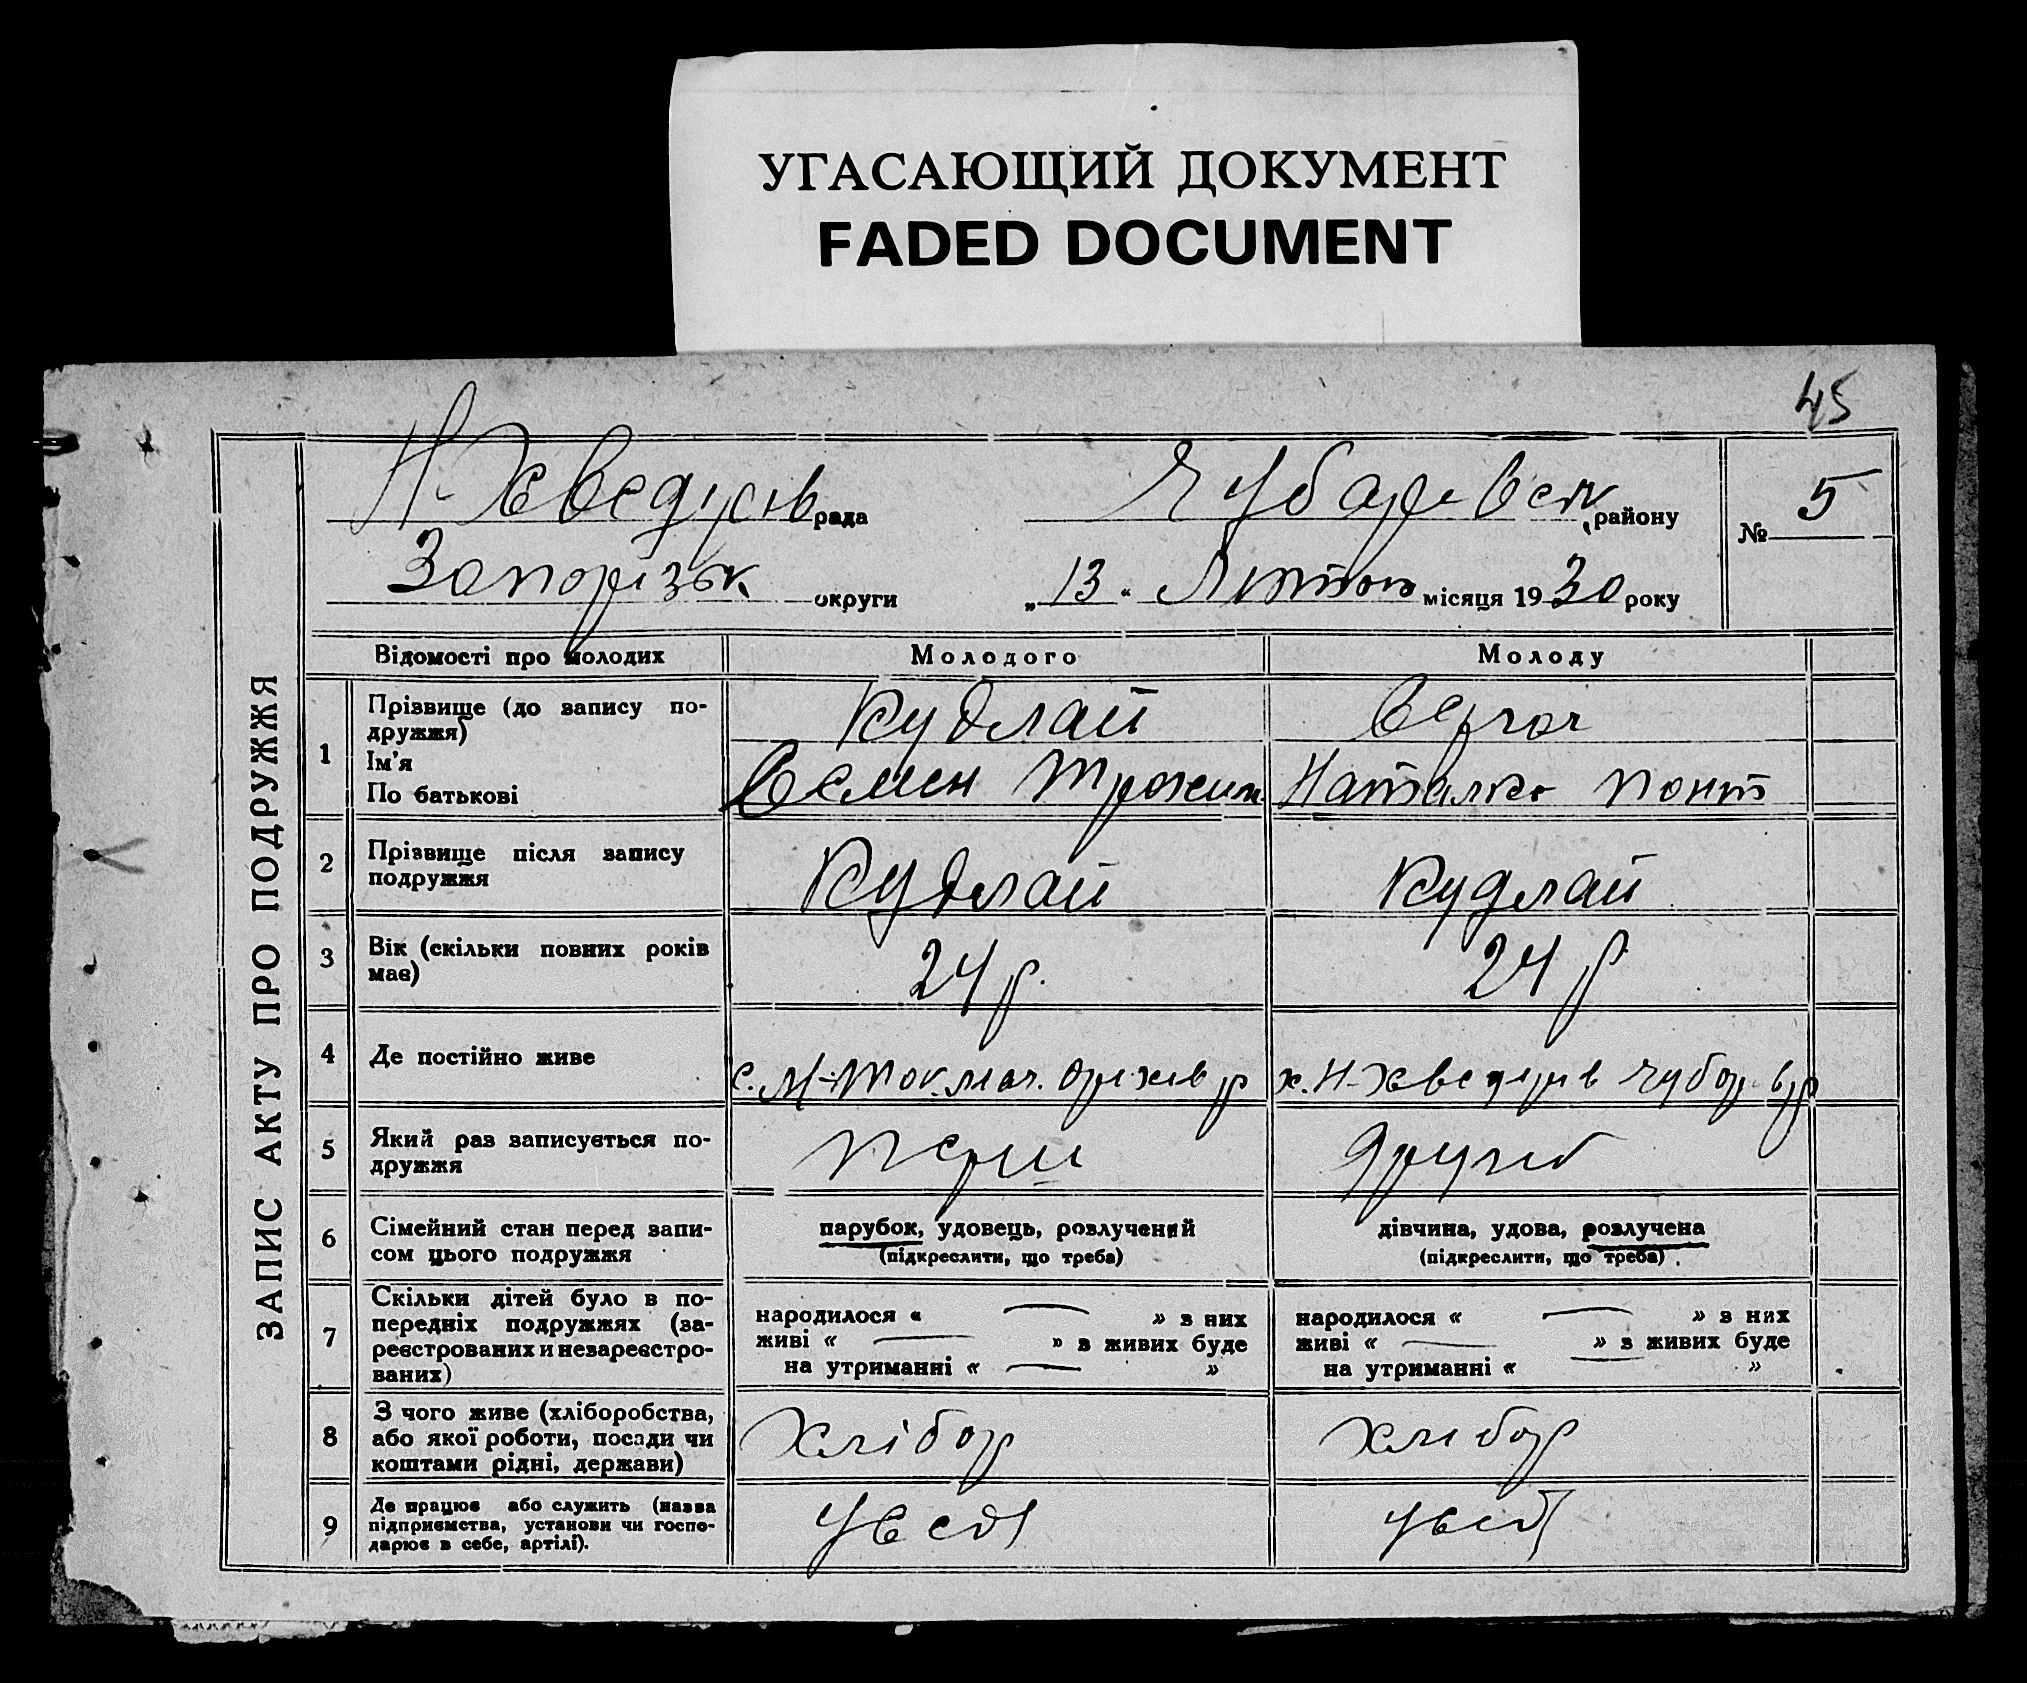 УГАСАЮЩИЙ ДОКУМЕНТ
FADED DOCUMENT
45
ЗАПИС АКТУ ПРО ПОДРУЖЖЯ
Н-Хведорів рада Чубарівськ району № 5
Запорізьк округи „13“ Лютого місяця 1930 року
Відомості про молодих Молодого Молоду
1 Прізвище (до запису по-
дружжя) Кудлай
Ім'я
По батькові Семен Трохим. Наталка
2 Прізвище після запису
подружжя Кудлай Кудлай
3 Вік (скільки повних років
має) 24 р. 24 р
4 Де постійно живе с. М-Токмач. Оріхів р х. Н-Хведорів Чубар р
5 Який раз записується по-
дружжя перш другий
6 Сімейний стан перед запи-
сом цього подружжя
парубок, удовець, розлучений дівчина, удова, розлучена
(підкреслити, що треба) (підкреслити, що треба)
7 Скільки дітей було в по-
передніх подружжях (за-
реєстрованих и незареєстро-
ваних)
народилося « — » з них народилося « — » з них
живі « — » в живих буде живі « — » з живих буде
на утриманні « — » на утриманні « — »
8 З чого живе (хліборобства,
або якої роботи, посади чи
коштами рідні, держави) Хлібор хлібор
9 Де працює або служить (назва
підприємства, установи чи госпо-
дарює в себе, артілі). У себе у себе